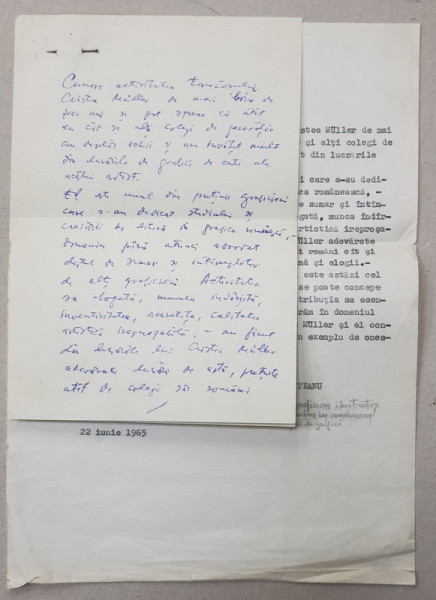 Cunosc activitatea tovarășului
Cristea Müller de mai bine de
zece ani și pot spune că atât
eu cât și alți colegi de generație
am și am învățat mult
din lucrările de grafică de carte ale
acestui artist.
El este unul din puținii graficieni
care s-au dedicat studiului și
creației de literă în grafica românească, -
domeniu până atunci abordat
destul de sumar și întâmplător
de alți graficieni. Activitatea
sa bogată, munca îndârjită,
inventivitatea, calitatea
artistică ireproșabilă, - au făcut
din lucrările lui Cristea Müller
adevărate lucrări de artă, prețuite
atât de colegii săi români
stea Müller de mai
și alți colegi de
t din lucrările
i care s-au dedi-
ca românească, -
e sumar și întîm-
ogată, munca îndîr-
rtistică ireproșa-
üller adevărate
i români cît și
mă și elogii.-
este astăzi cel
se poate concepe
tribuția sa esen-
răm în domeniul
Müller și el con-
n exemplu de ones-
TEANU
grafician ilustrator
de grafică
22 iunie 1965